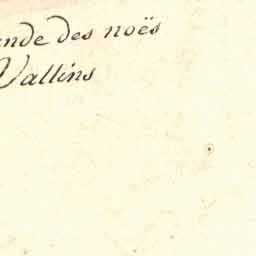 ande des noës
Vallins